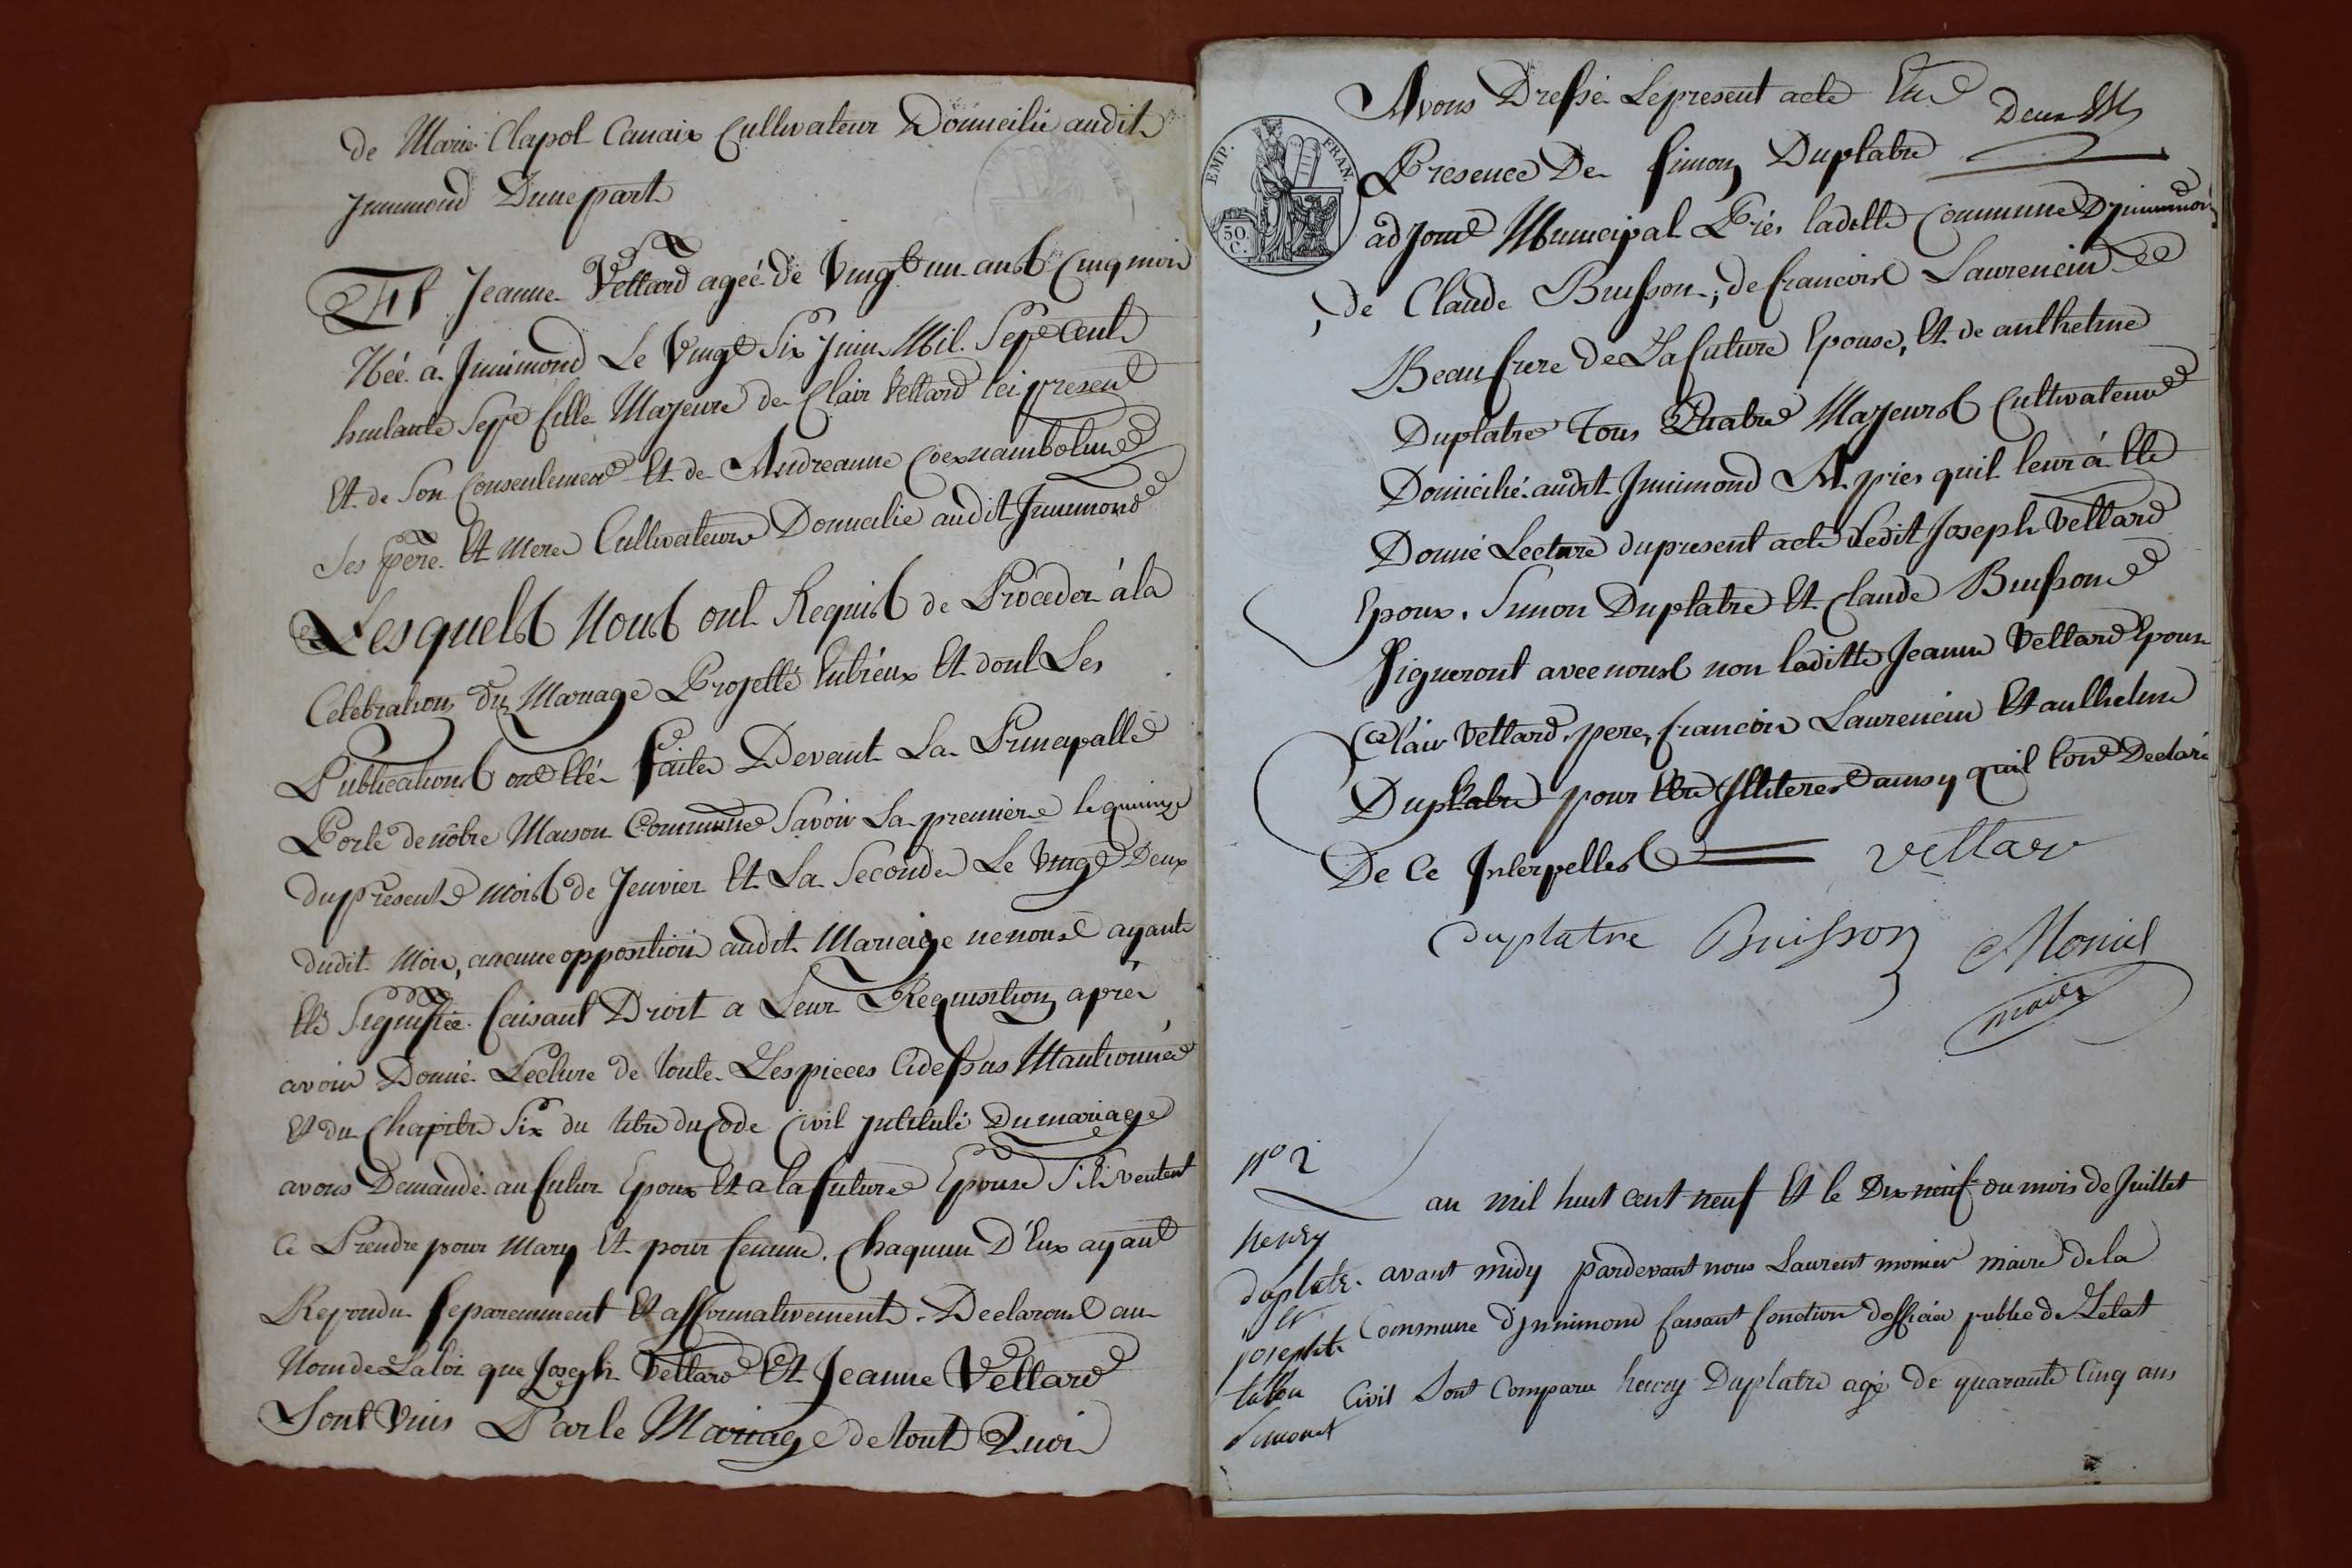 de Marie Clapol Canaix Cultivateur Domicilié audit
Jnnimond D'une part
Et Jeanne Vettard ageé de Vingt un ans Cinq mois
Néé á Jnnimond Le Vingt Six Juin Mil Sept Cent
huitante Sept fille Majeure de Clair Vettard ici present
Et de Son Consentement Et de Andreanne
Ses père Et Mere Cultivateurs Domicilie audit Jnnimond
Lesquels Nous ont Requis de Proceder á la
Celebration du Mariage Projetté Entréux Et dont Les
Publications ont Eté faites Devant La Principalle
Porte de nôtre Maison Commune Savoir La premiere le quinze
du présent mois de Jenvier Et La Seconde Le Vingt Deux
dudit Mois, aucune opposition audit Mariage ne nous ayant
Eté Signifiée faisant Droit a Leur Requisition aprés
avoir Donné Lecture de toute Les pieces Cidessus Mantionnée
Et du Chapitre Six du titre du Code Civil Jntitulé Du mariage
avons Demandé au futur Epoux Et a la future Epouse S'ils veulent
Ce Prendre pour Mary Et pour femme. Chaquun D'Eux ayant
Repondu Separemment Et affirmativement. Declarons au
Nom de La loi que Joseph Vettard Et Jeanne Vettard
Sont Unis Par le Mariage de tout Quoi
Avons Dressé Le present acte En
Deux
EMP. FRAN.
50 C.
Presence De Simon Duplatre
adjoint Municipal Prés ladette Commune D'jnnimond
, de Claude Buisson, de francois Laurencin
Beaufrere de La future Epouse, Et de anthelme
Duplatre Tous Quatre Majeurs Cultivateurs
Domicilié audit Jnnimond A pres quil leur á Eté
Donné Lecture du present acte Ledit Joseph Vettard
Epoux, Simon Duplatre Et Claude Buisson
Signeront avec nous non laditte Jeanne Vettard Epouse
Clair Vettard, pere, francois Laurencin Et anthelme
Duplatre pour Etre Jlliteres ainsy quil l'ont Declaré
De Ce Jnterpelles
vettard
duplatre Buisson Monier
maire
No 2
Lan mil huit cent neuf Et le Dix neuf du mois de Juillet
henry
duplatre
Et
josephte
Simonet
avant midy pardevant nous Laurent monier maire de la
Commune d'jnnimond faisant fonction dofficier public de Letat
Civil Sont Comparu henry Duplatre agé de quarante Cinq ans